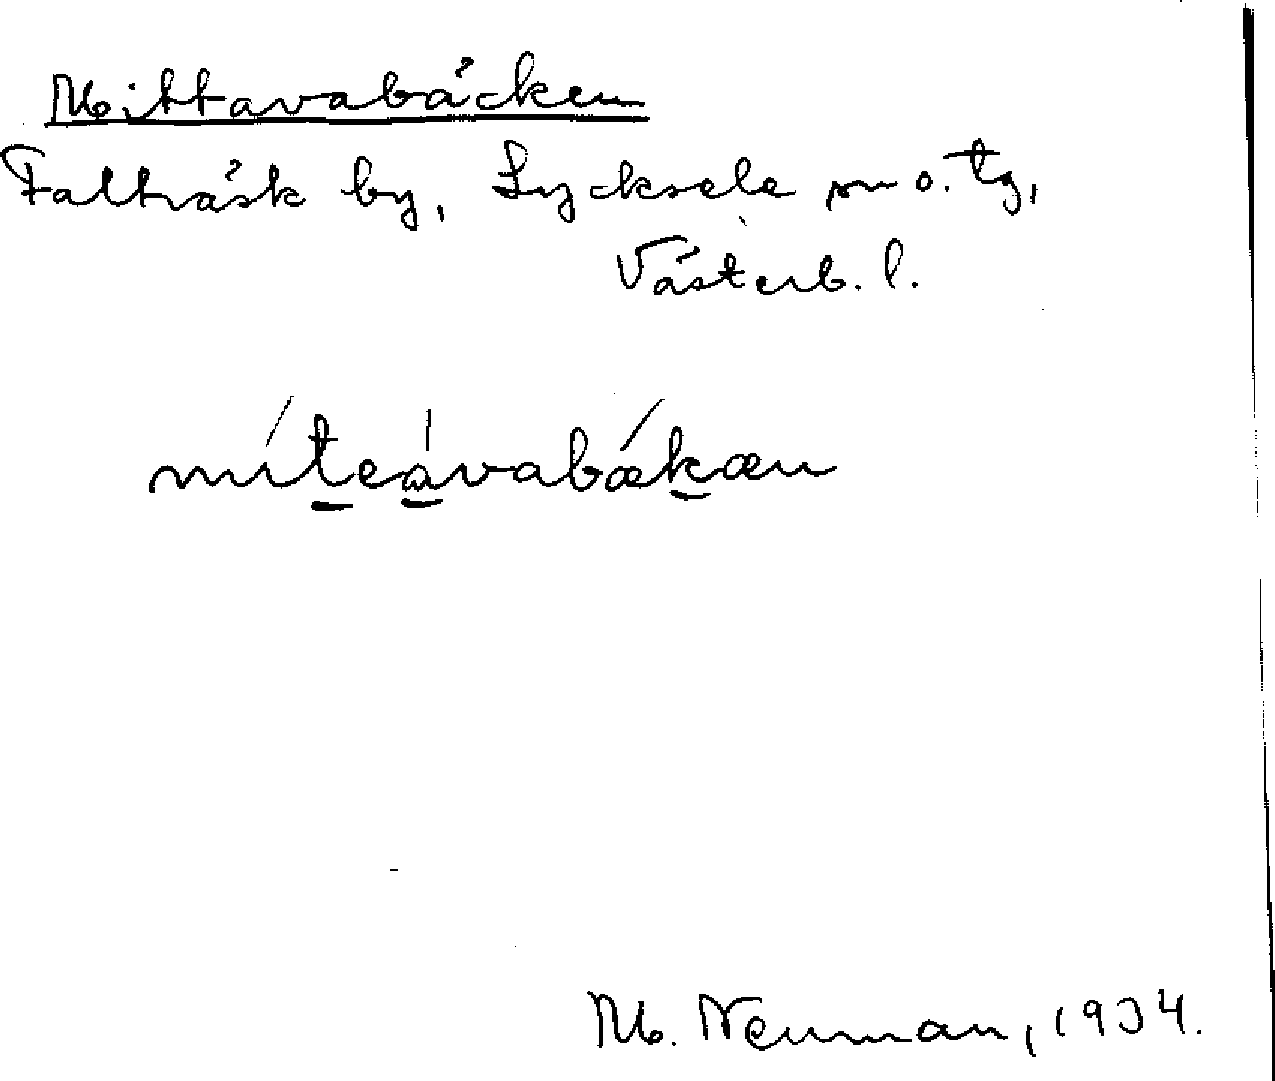 Mittavabäcken
Falträsk by, Lycksele sn o. tg,
Västerb. l.
míteávabǽkæn
M. Neuman, 1934.